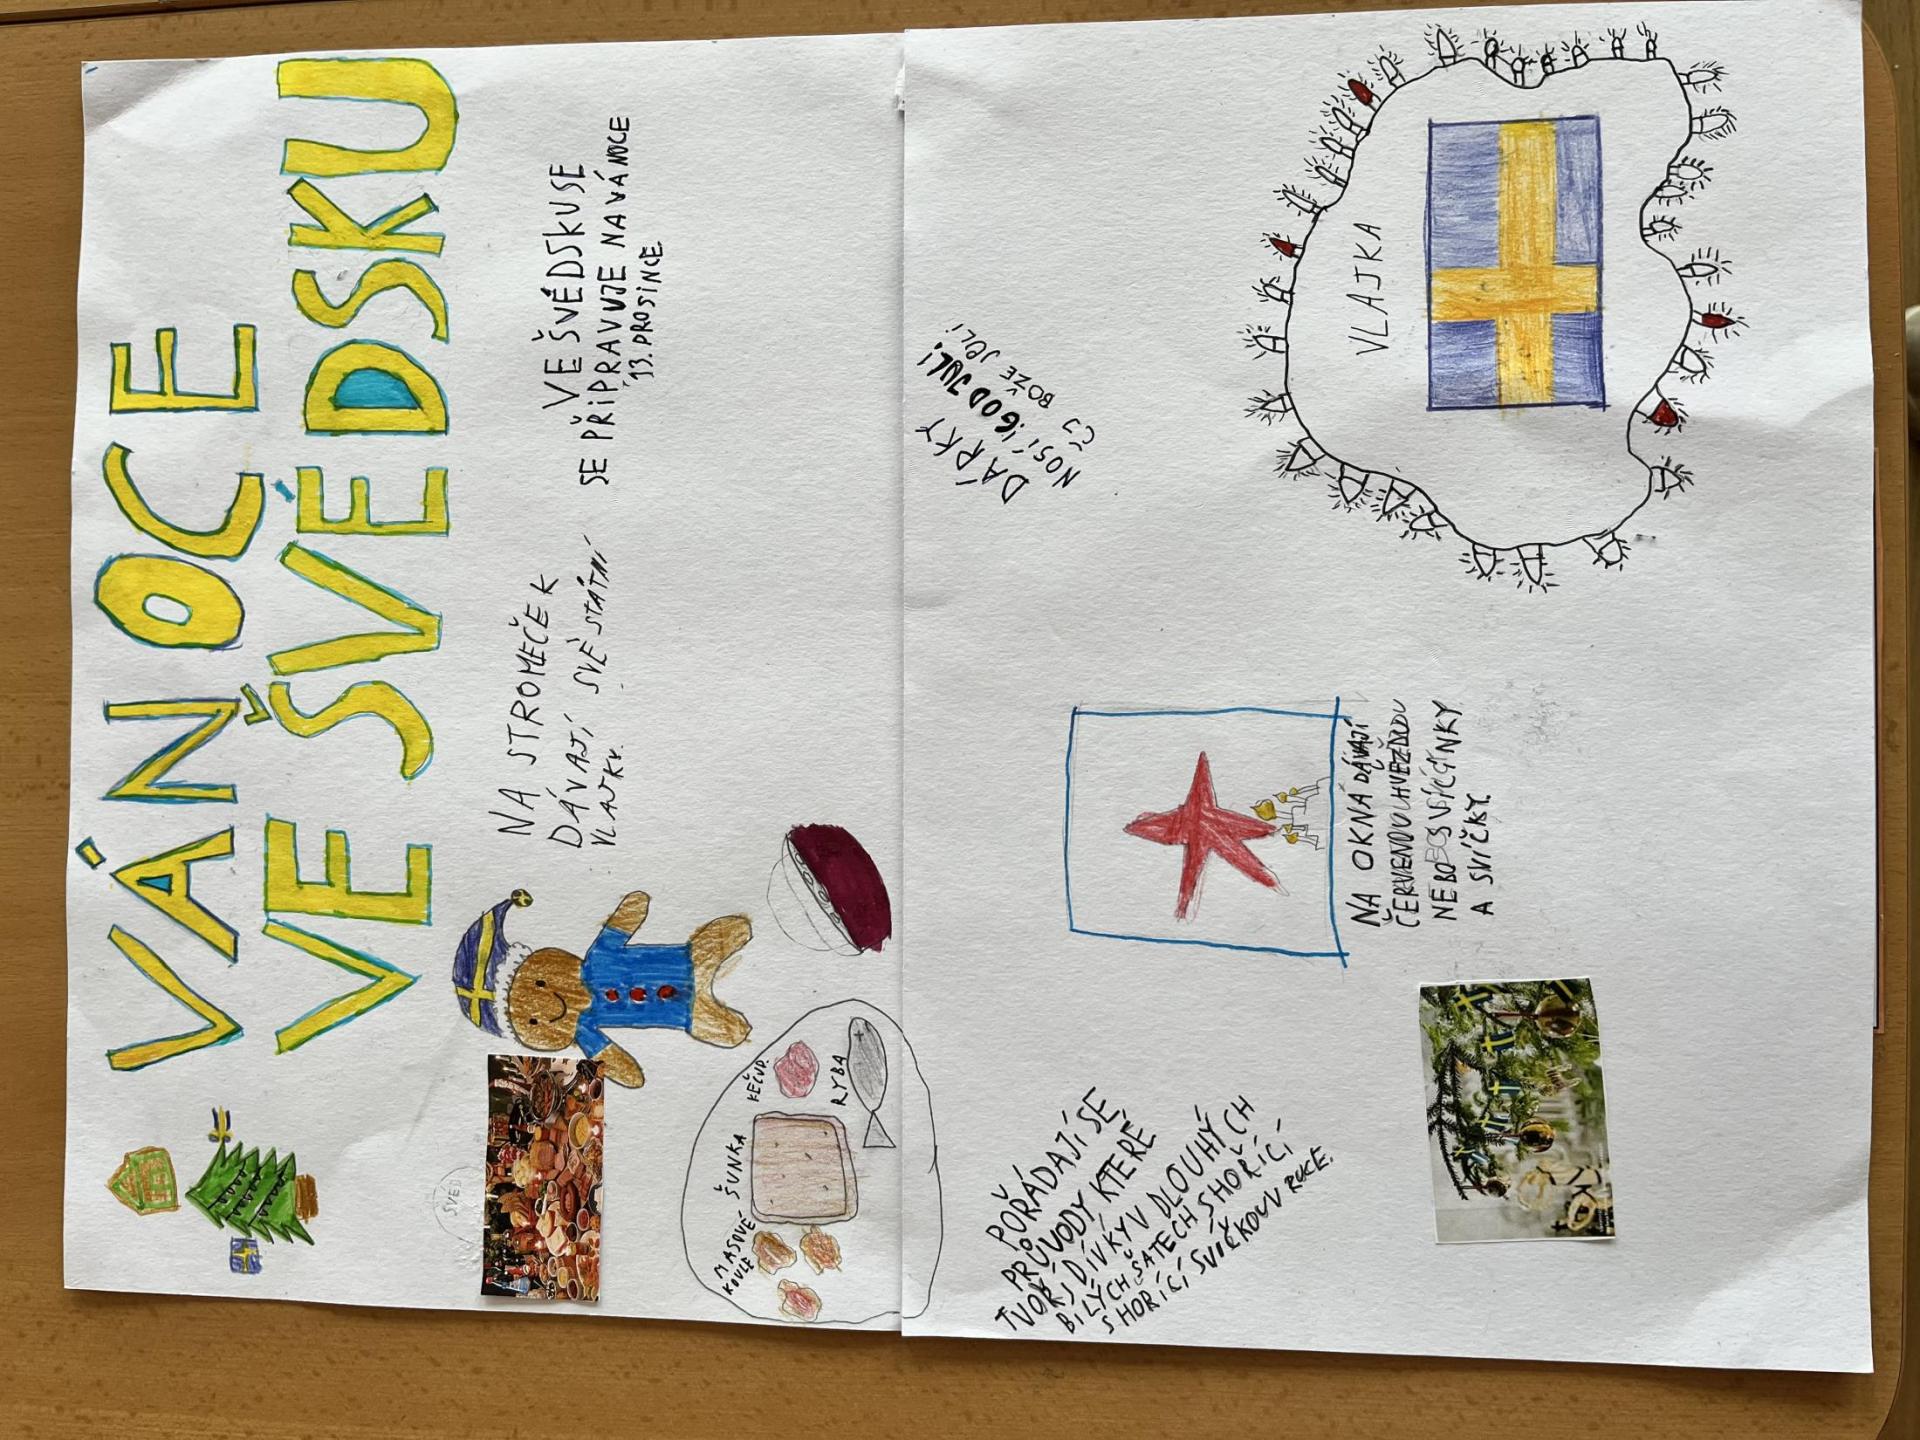 VÁNOCE
VE ŠVÉDSKU
NA STROMEČEK
DÁVAJÍ SVÉ STÁTNÍ
VLAJKY.
VE ŠVÉDSKU SE
SE PŘIPRAVUJE NA VÁNOCE
13. PROSINCE
ŠVÉD
MASOVÉ
KOULE
ŠUNKA
KEČUP.
RYBA
DÁRKY
NOSÍ "GOD JUL!
ČJ BOŽE JELI
VLAJKA
NA OKNA DÁVAJÍ
ČERVENOU HVĚZDU
NEBO SVÍCÍNKY
A SVÍČKY.
POŘÁDAJÍ SE
PRŮVODY KTERÉ
TVOŘÍ DÍVKY V DLOUHÝ
BILÝCH ŠATECH S HOŘÍCÍ CH
S HOŘÍCÍ SVÍČKOU V RUCE.